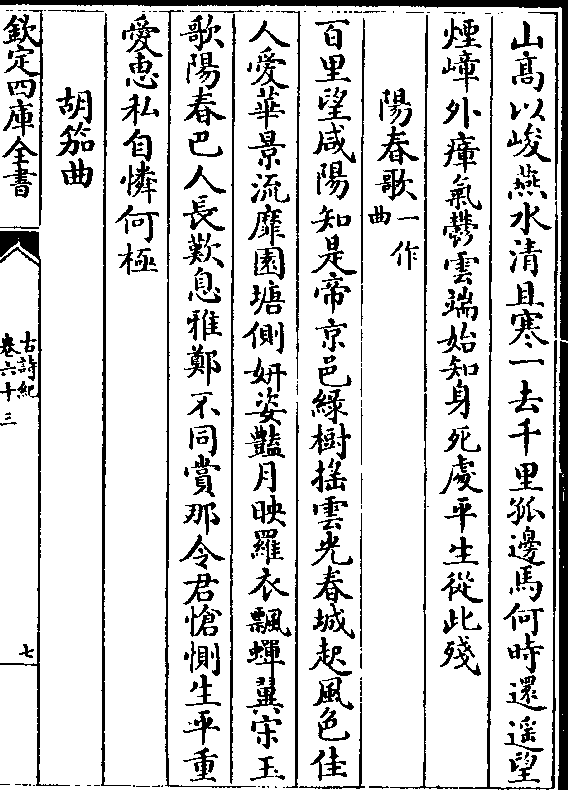 山髙以峻燕水清且寒一去千里孤邊馬何時還遥望
煙嶂外瘴氣鬱雲端始知身死處平生從此殘
陽春歌一作曲
百里望咸陽知是帝京邑緑樹揺雲光春城起風色佳
人愛華景流靡園塘側妍姿豔月映羅衣飄蟬翼宋玉
歌陽春巴人長歎息雅鄭不同賞那令君愴惻生平重
愛恵私自憐何極
胡笳曲
欽定四庫全書
古詩紀
卷六十三
七